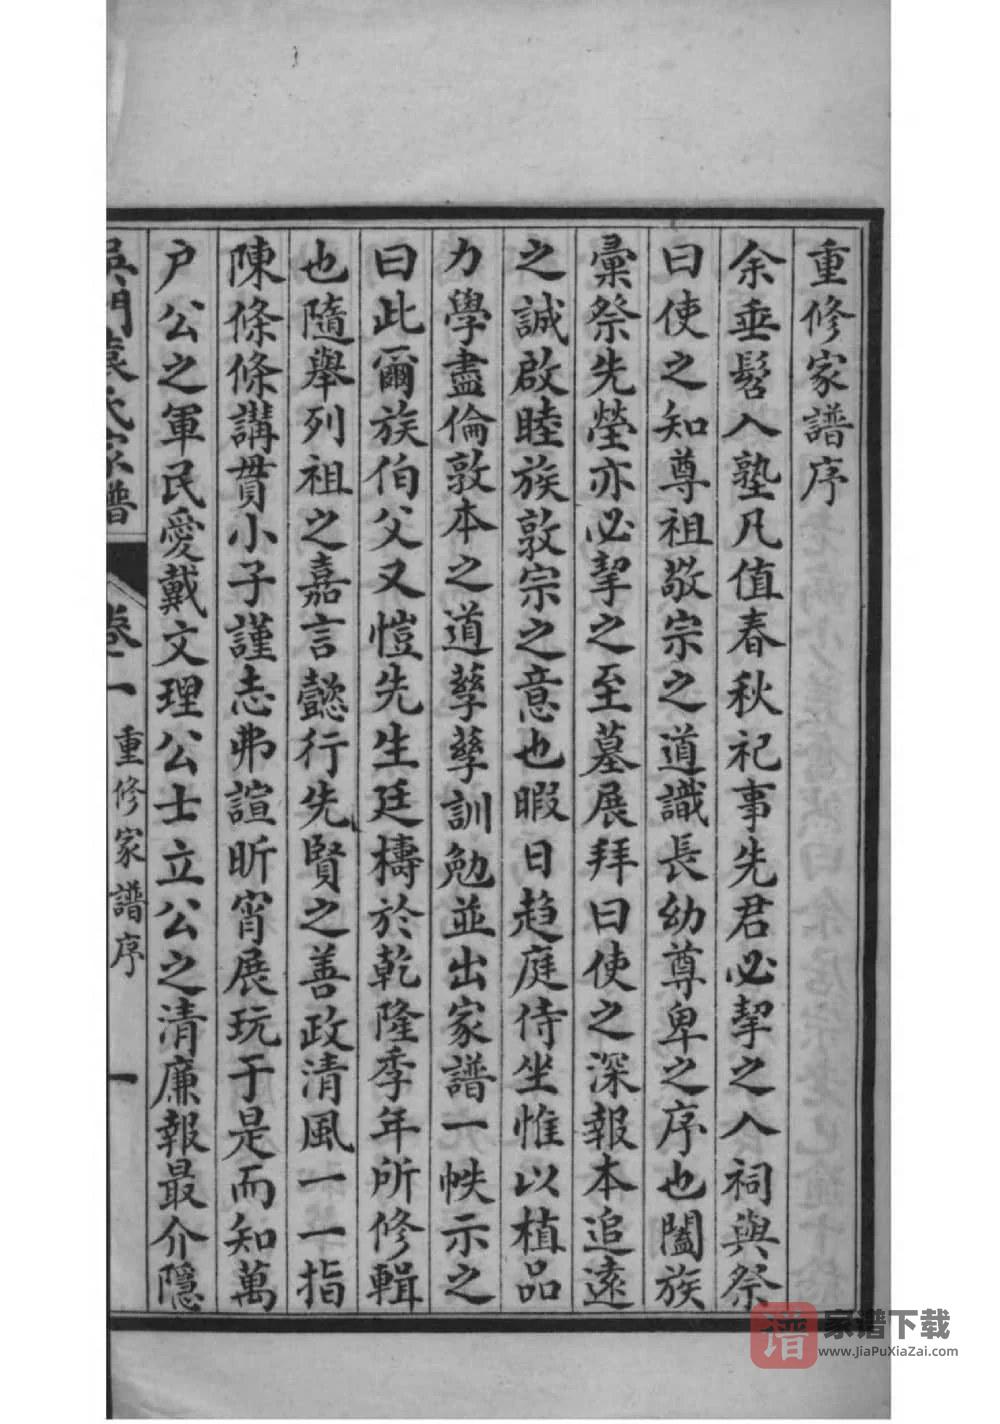 重修家譜序
余垂髫入塾凡值春秋祀事先君必挈之入祠與祭
曰使之知尊祖敬宗之道識長幼尊卑之序也闔族
彙祭先塋亦必挈之至墓展拜曰使之深報本追遠
之誠啟睦族敦宗之意也暇日趨庭侍坐惟以植品
力學盡倫敦本之道孳孳訓勉並出家譜一帙示之
曰此爾族伯父又愷先生廷檮於乾隆季年所修輯
也隨舉列祖之嘉言懿行先賢之善政清風一一指
陳條條講貫小子謹志弗諼昕宵展玩于是而知萬
户公之軍民愛戴文理公士立公之清廉報最介隱
吳門袁氏家譜 卷一 重修家譜序 一
譜 家谱下载
www.JiaPuXiaZai.com